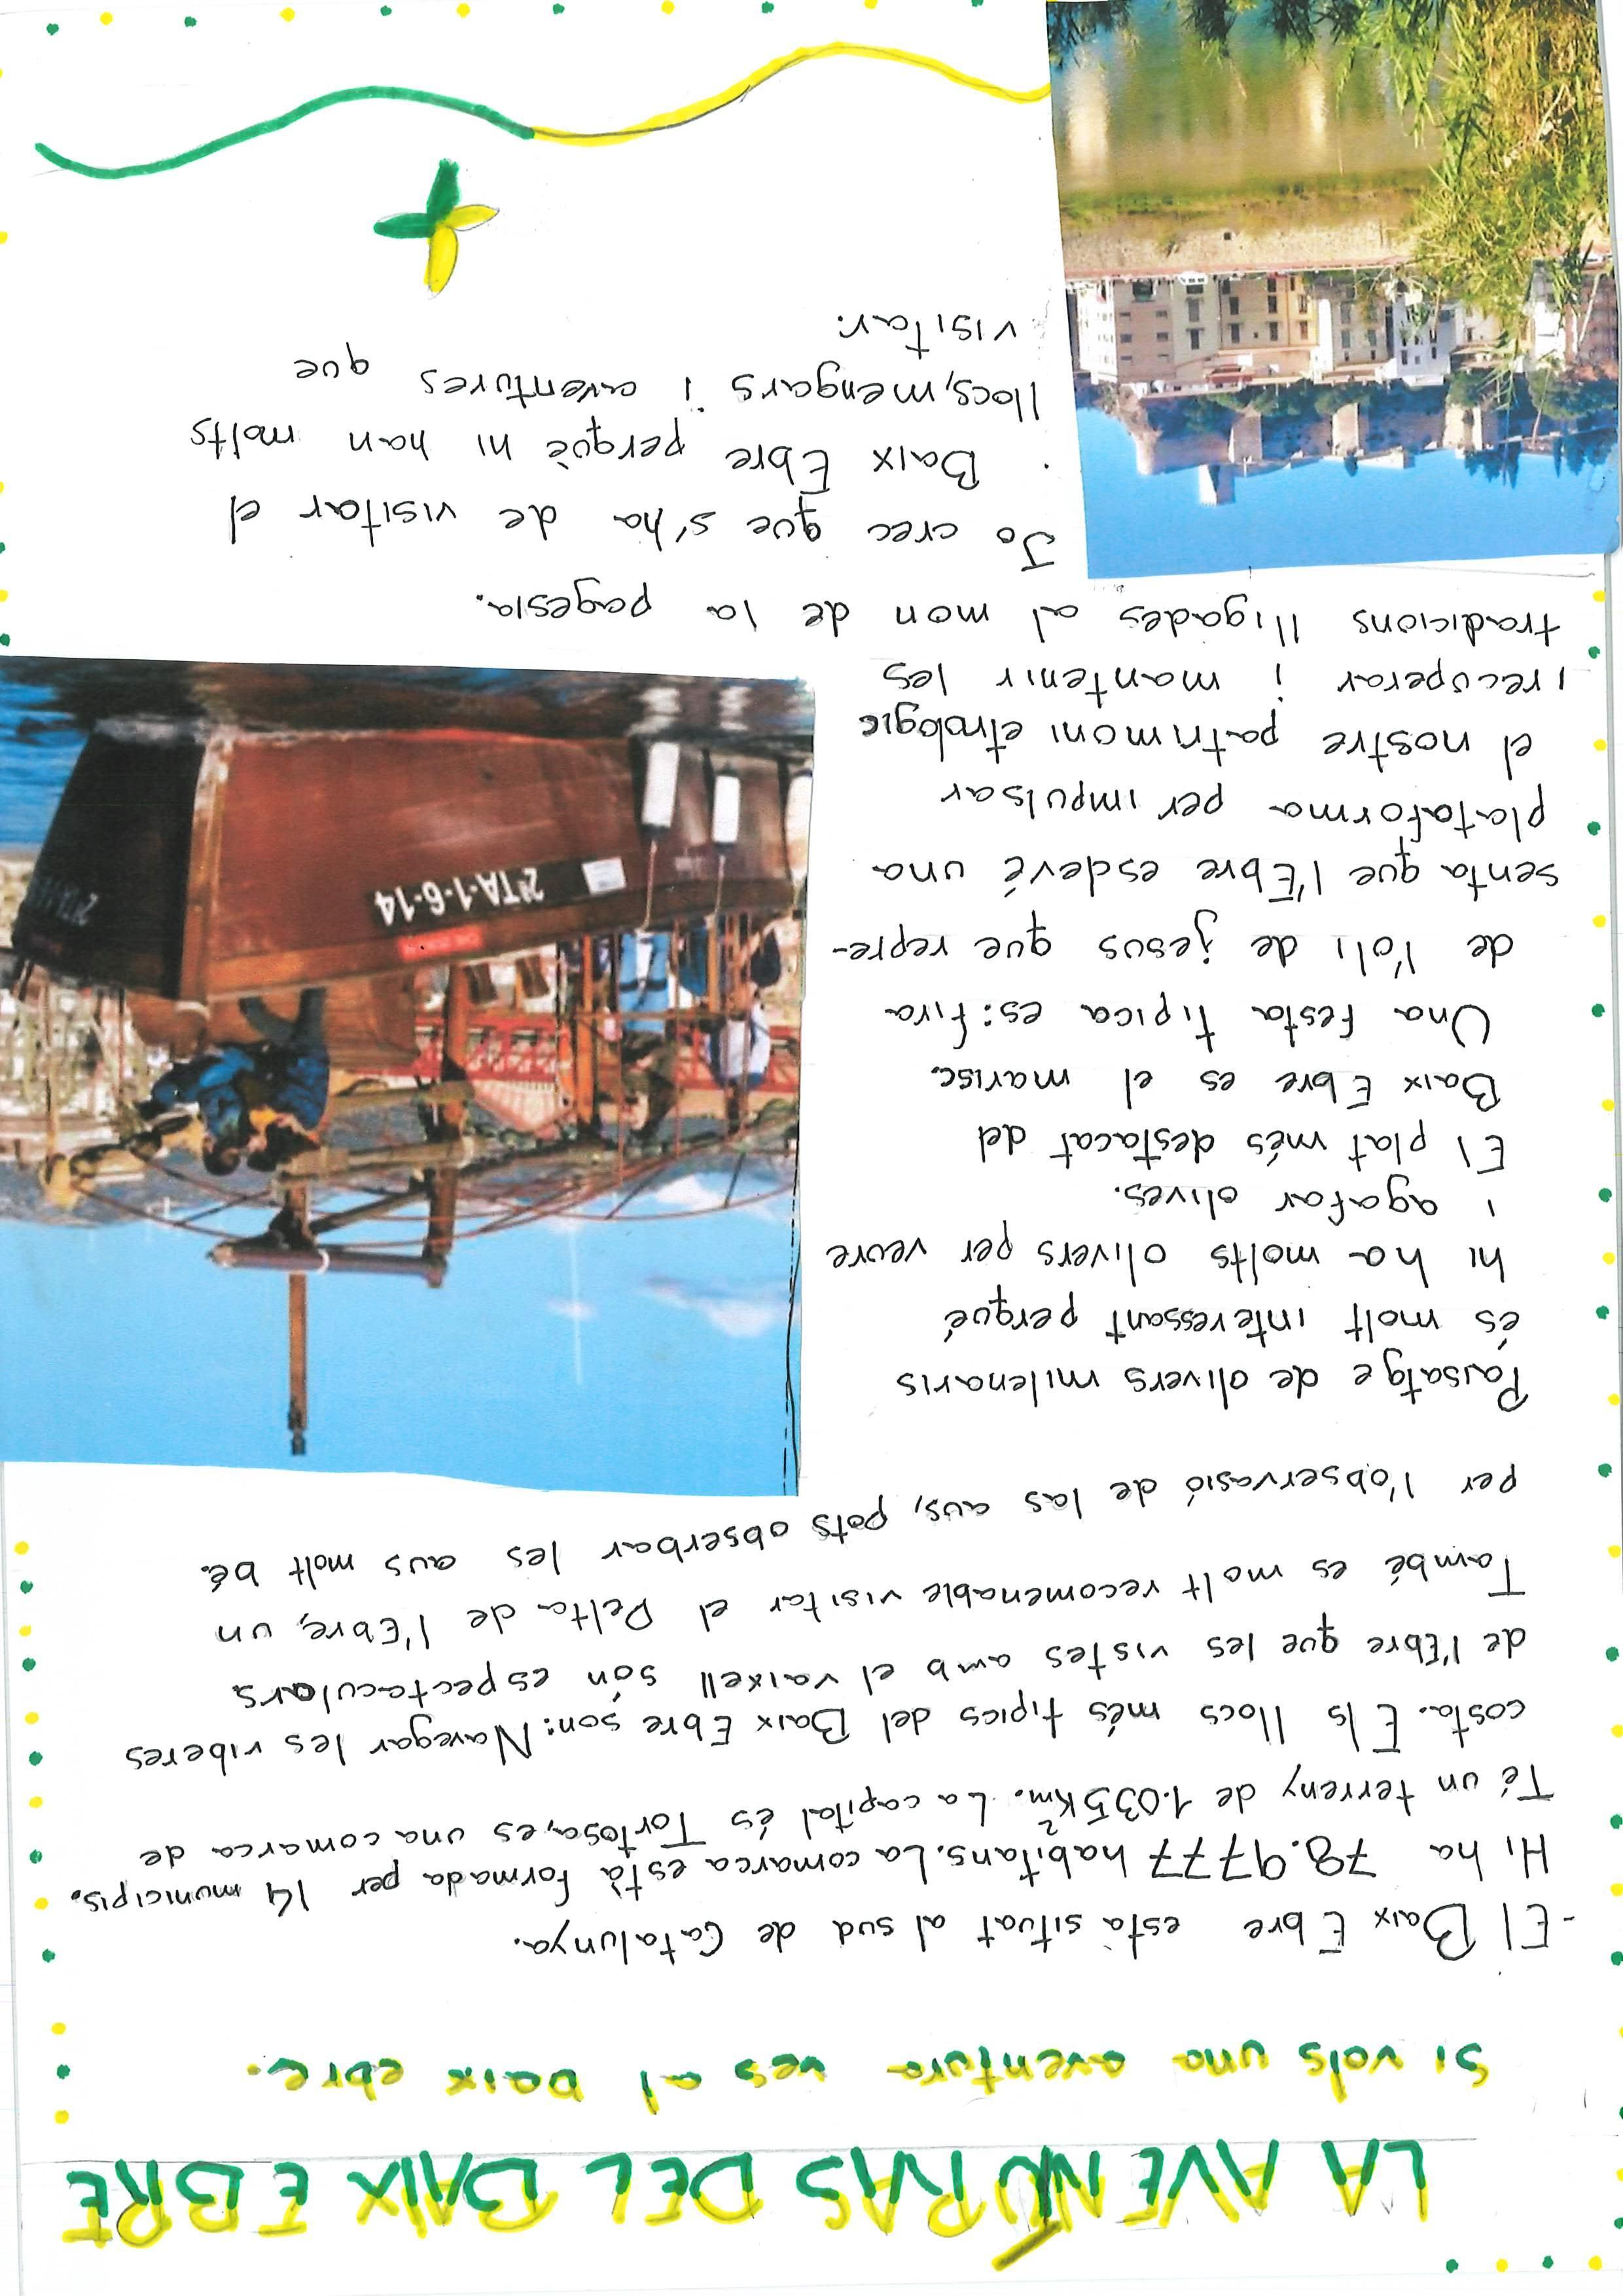 LA AVENTURAS DEL BAIX EBRE
Si vols una aventura ves al baix ebre.
-El Baix Ebre està situat al sud de Catalunya.
Hi ha 78.9777 habitans. La comarca està formada per 14 municipis.
Té un terreny de 1.035Km². La capital és Tortosa, es una comarca de
costa. Els llocs més tipics del Baix Ebre son: Navegar les riberes
de l'Ebre que les vistes amb el vaixell són espectaculars
També es molt recomenable visitar el Delta de l'Ebre, un
per l'observasió de las aus, pots obserbar les aus molt bé.
Paisatge de olivers milenaris
és molt interessant perqué
hi ha molts olivers per veure
i agafar olives.
El plat més destacat del
Baix Ebre es el marisc.
Una festa tipica es: fira
de l'oli de jesus que repre-
senta que l'Ebre esdevé una
plataforma per impulsar
el nostre patrimoni etnologic
i recuperar i mantenir les
tradicions lligades al mon de la pagesia.
Jo crec que s'ha de visitar el
Baix Ebre perquè hi han molts
llocs, mengars i aventures que
visitar.
2ªTA-1-6-14